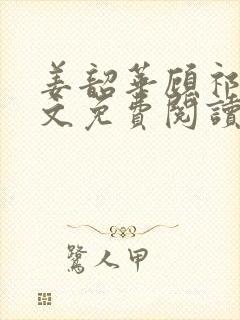 姜韶華顧祁
文免費閱讀
鷺人甲